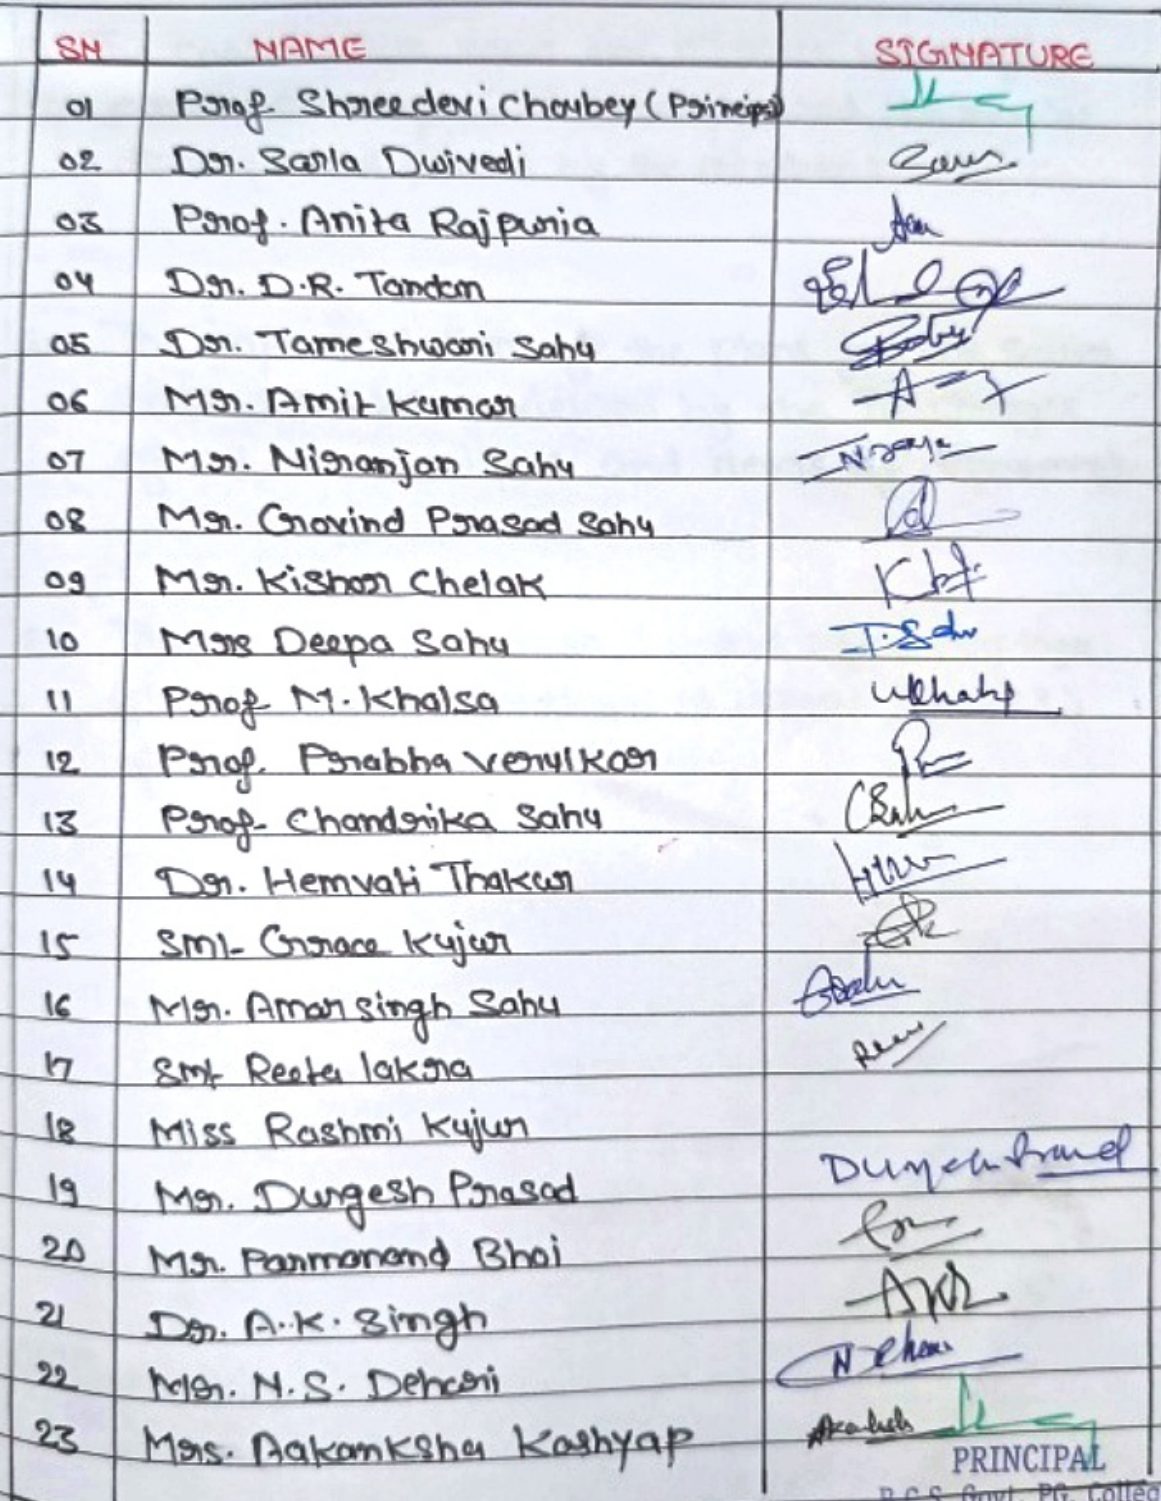 SN NAME SIGNATURE
01 Prof. Shreedevi Choubey (Principal)
02 Dr. Sarla Dwivedi
03 Prof. Anita Rajpuria
04 Dr. D.R. Tandan
05 Dr. Tameshwari Sahu
06 Mr. Amit Kumar
07 Mr. Niranjan Sahu
08 Mr. Govind Prasad Sahu
09 Mr. Kishor Chelak
10 Mrs Deepa Sahu D.Sahu
11 Prof M. Khalsa
12 Prof. Prabha Verulkar
13 Prof. Chandrika Sahu
14 Dr. Hemvati Thakur
15 Smt. Grace Kujur
16 Mr. Amar Singh Sahu
17 Smt Reeta lakra
18 Miss Rashmi Kujur
19 Mr. Durgesh Prasad
20 Mr. Parmanand Bhoi
21 Dr. A.K. Singh
22 Mr. N.S. Dehari
23 Mrs. Aakanksha Kashyap
PRINCIPAL
Govt. PG. College